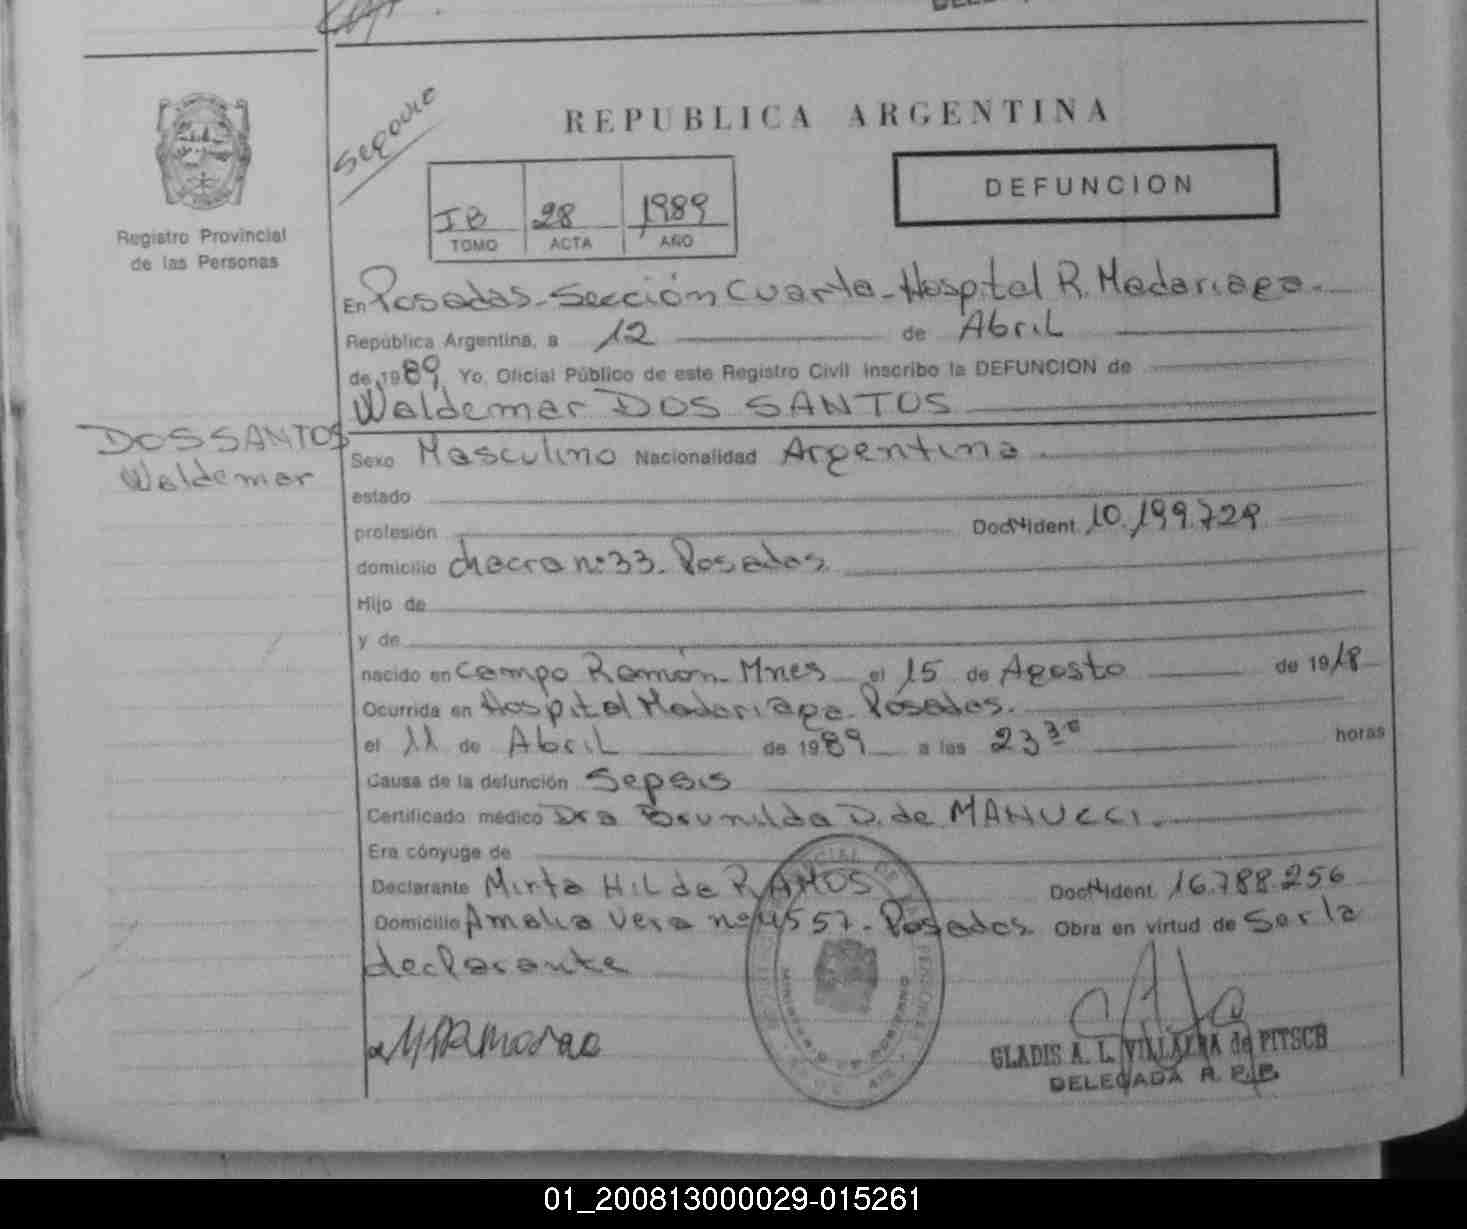 Segovie
REPUBLICA ARGENTINA
DEFUNCION
IB 28 1989
TOMO ACTA AÑO
Registro Provincial
de las Personas
En Posadas - Sección Cuarta - Hospital R. Madariaga.
República Argentina, a 12 de Abril
de 1989 Yo, Oficial Público de este Registro Civil inscribo la DEFUNCION de
Waldemar DOS SANTOS
DOS SANTOS
Waldemar
Sexo Masculino Nacionalidad Argentina.
estado
profesión Doc Ident. 10.199.729
domicilio chacra nº 33. Posadas.
Hijo de
y de
nacido en Campo Ramón - Mnes el 15 de Agosto de 1918
Ocurrida en Hospital Madariaga. Posadas.
el 11 de Abril de 1989 a las 23 30 horas
Causa de la defunción Sepsis
Certificado médico Dra Brunilda D. de MANUCCI.
Era cónyuge de
Declarante Mirta Hilda RAMOS Doc Ident. 16.788.256
Domicilio Amalia Vera nº 4557 - Posadas. Obra en virtud de Ser la
declarante
MINISTERIO DE GOBIERNO
GLADIS A. L. VILLALBA de PITSCH
DELEGADA R. P. P.
01_200813000029-015261